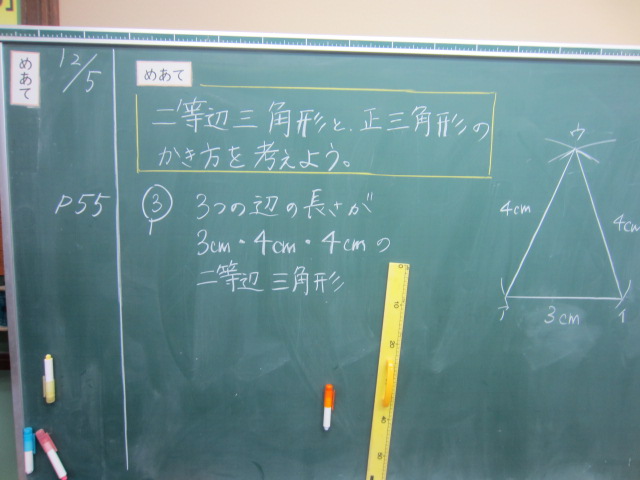 めあて
12/5
めあて
二等辺三角形と、正三角形の
かき方を考えよう。
P55
③ 3つの辺の長さが
3cm・4cm・4cmの
二等辺三角形
ウ
4cm
4cm
ア
イ
3cm